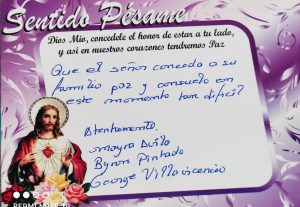 Sentido Pésame
Dios Mio, concedele el honor de estar a tu lado,
y así en nuestros corazones tendremos Paz
Que el señor conceda a su
familia paz y consuelo em
este momento tam dificil
Atentamente,
Smayra Avila
Byron Pintado
George Villavicencio